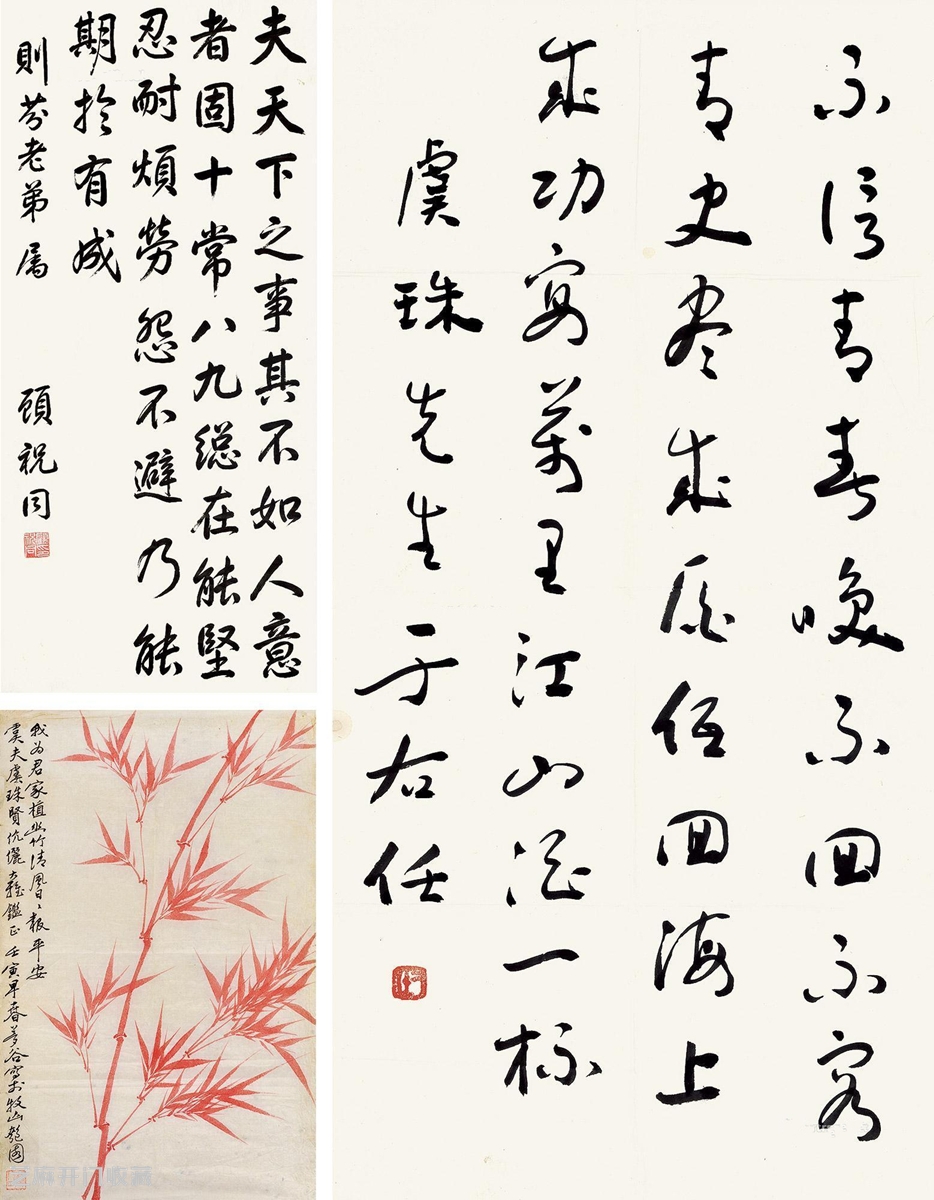 不信青春喚不回不容
青史盡成灰低回海上
成功宴萬里江山酒一杯
虞珠先生 于右任
夫天下之事其不如人意
者固十常八九總在能堅
忍耐煩勞怨不避乃能
期於有成
則芬老弟屬 顧祝同
我為君家植此竹清風日日報平安
虞夫虞珠賢伉儷大雅鑑正 壬寅早春夢谷寫於牧山